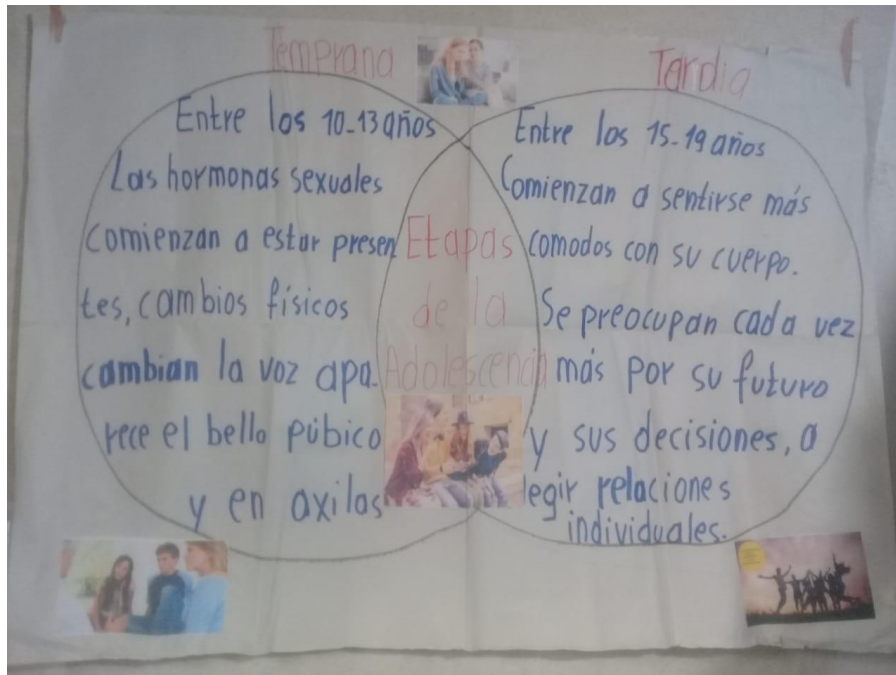 Temprana
Entre los 10-13 años
Las hormonas sexuales
comienzan a estar presen
tes, cambios físicos
cambian la voz apa-
rece el bello púbico
y en axilas
Etapas
de la
Adolescencia
Tardia
Entre los 15-19 años
Comienzan a sentirse más
comodos con su cuerpo.
Se preocupan cada vez
más por su futuro
y sus decisiones, a
legir relaciones
individuales.